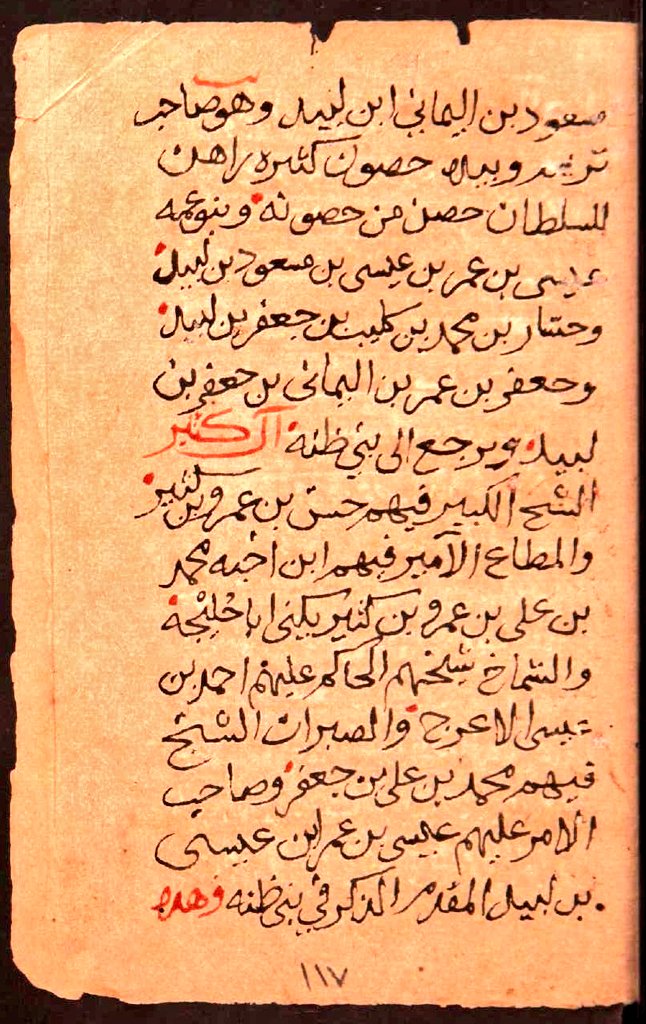 مسعود بن اليماني ابن لبيد وهو صاحب
تريم وبيده حصون كثيره راهن
للسلطان حصن من حصونه وبنو عمه
عيسى بن عمر بن عيسى بن مسعود بن لبيد
بن محمد بن كليب بن جعفر بن لبيد
وجعفر بن عمر بن اليماني بن جعفر بن
لبيد ويرجع الى بني ظنه ال كثير
الشيخ الكبير فيهم حسن بن عمرو بن كثير
والمطاع الامير فيهم ابن اخيه محمد
بن علي بن عمرو بن كثير يكنى ابا
والشماخ شيخهم الحاكم عليهم احمد بن
عيسى الاعرج والصبرات الشيخ
فيهم محمد بن علي بن جعفر وصاحب
الامر عليهم عيسى بن عمر ابن عيسى
بن لبيد المقدم الذكر في بني ظنه وهذه
١١٧